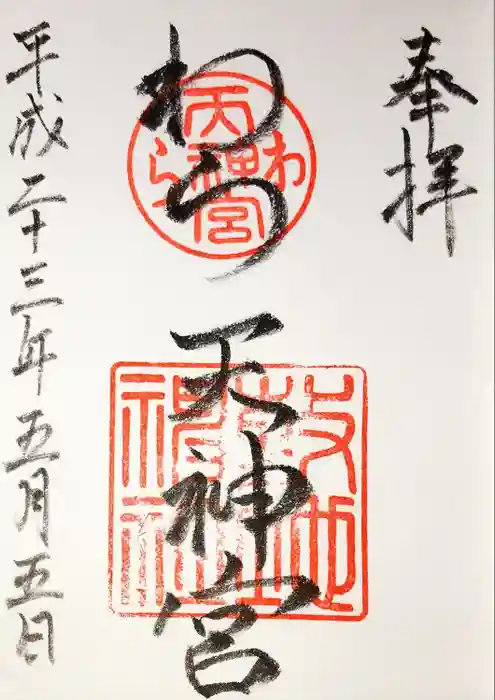 奉拝
わら天神宮
平成二十三年五月五日
わら天神宮
敷地神社